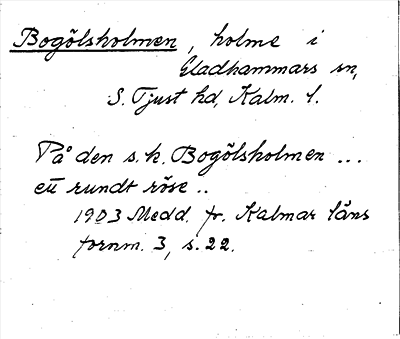 Bogölsholmen, holme i
Gladhammars sn,
S. Tjust hd, Kalm. l.
På den s.k. Bogölsholmen ...
ett rundt röse ..
1903 Medd. fr. Kalmar läns
fornm. 3, s. 22.